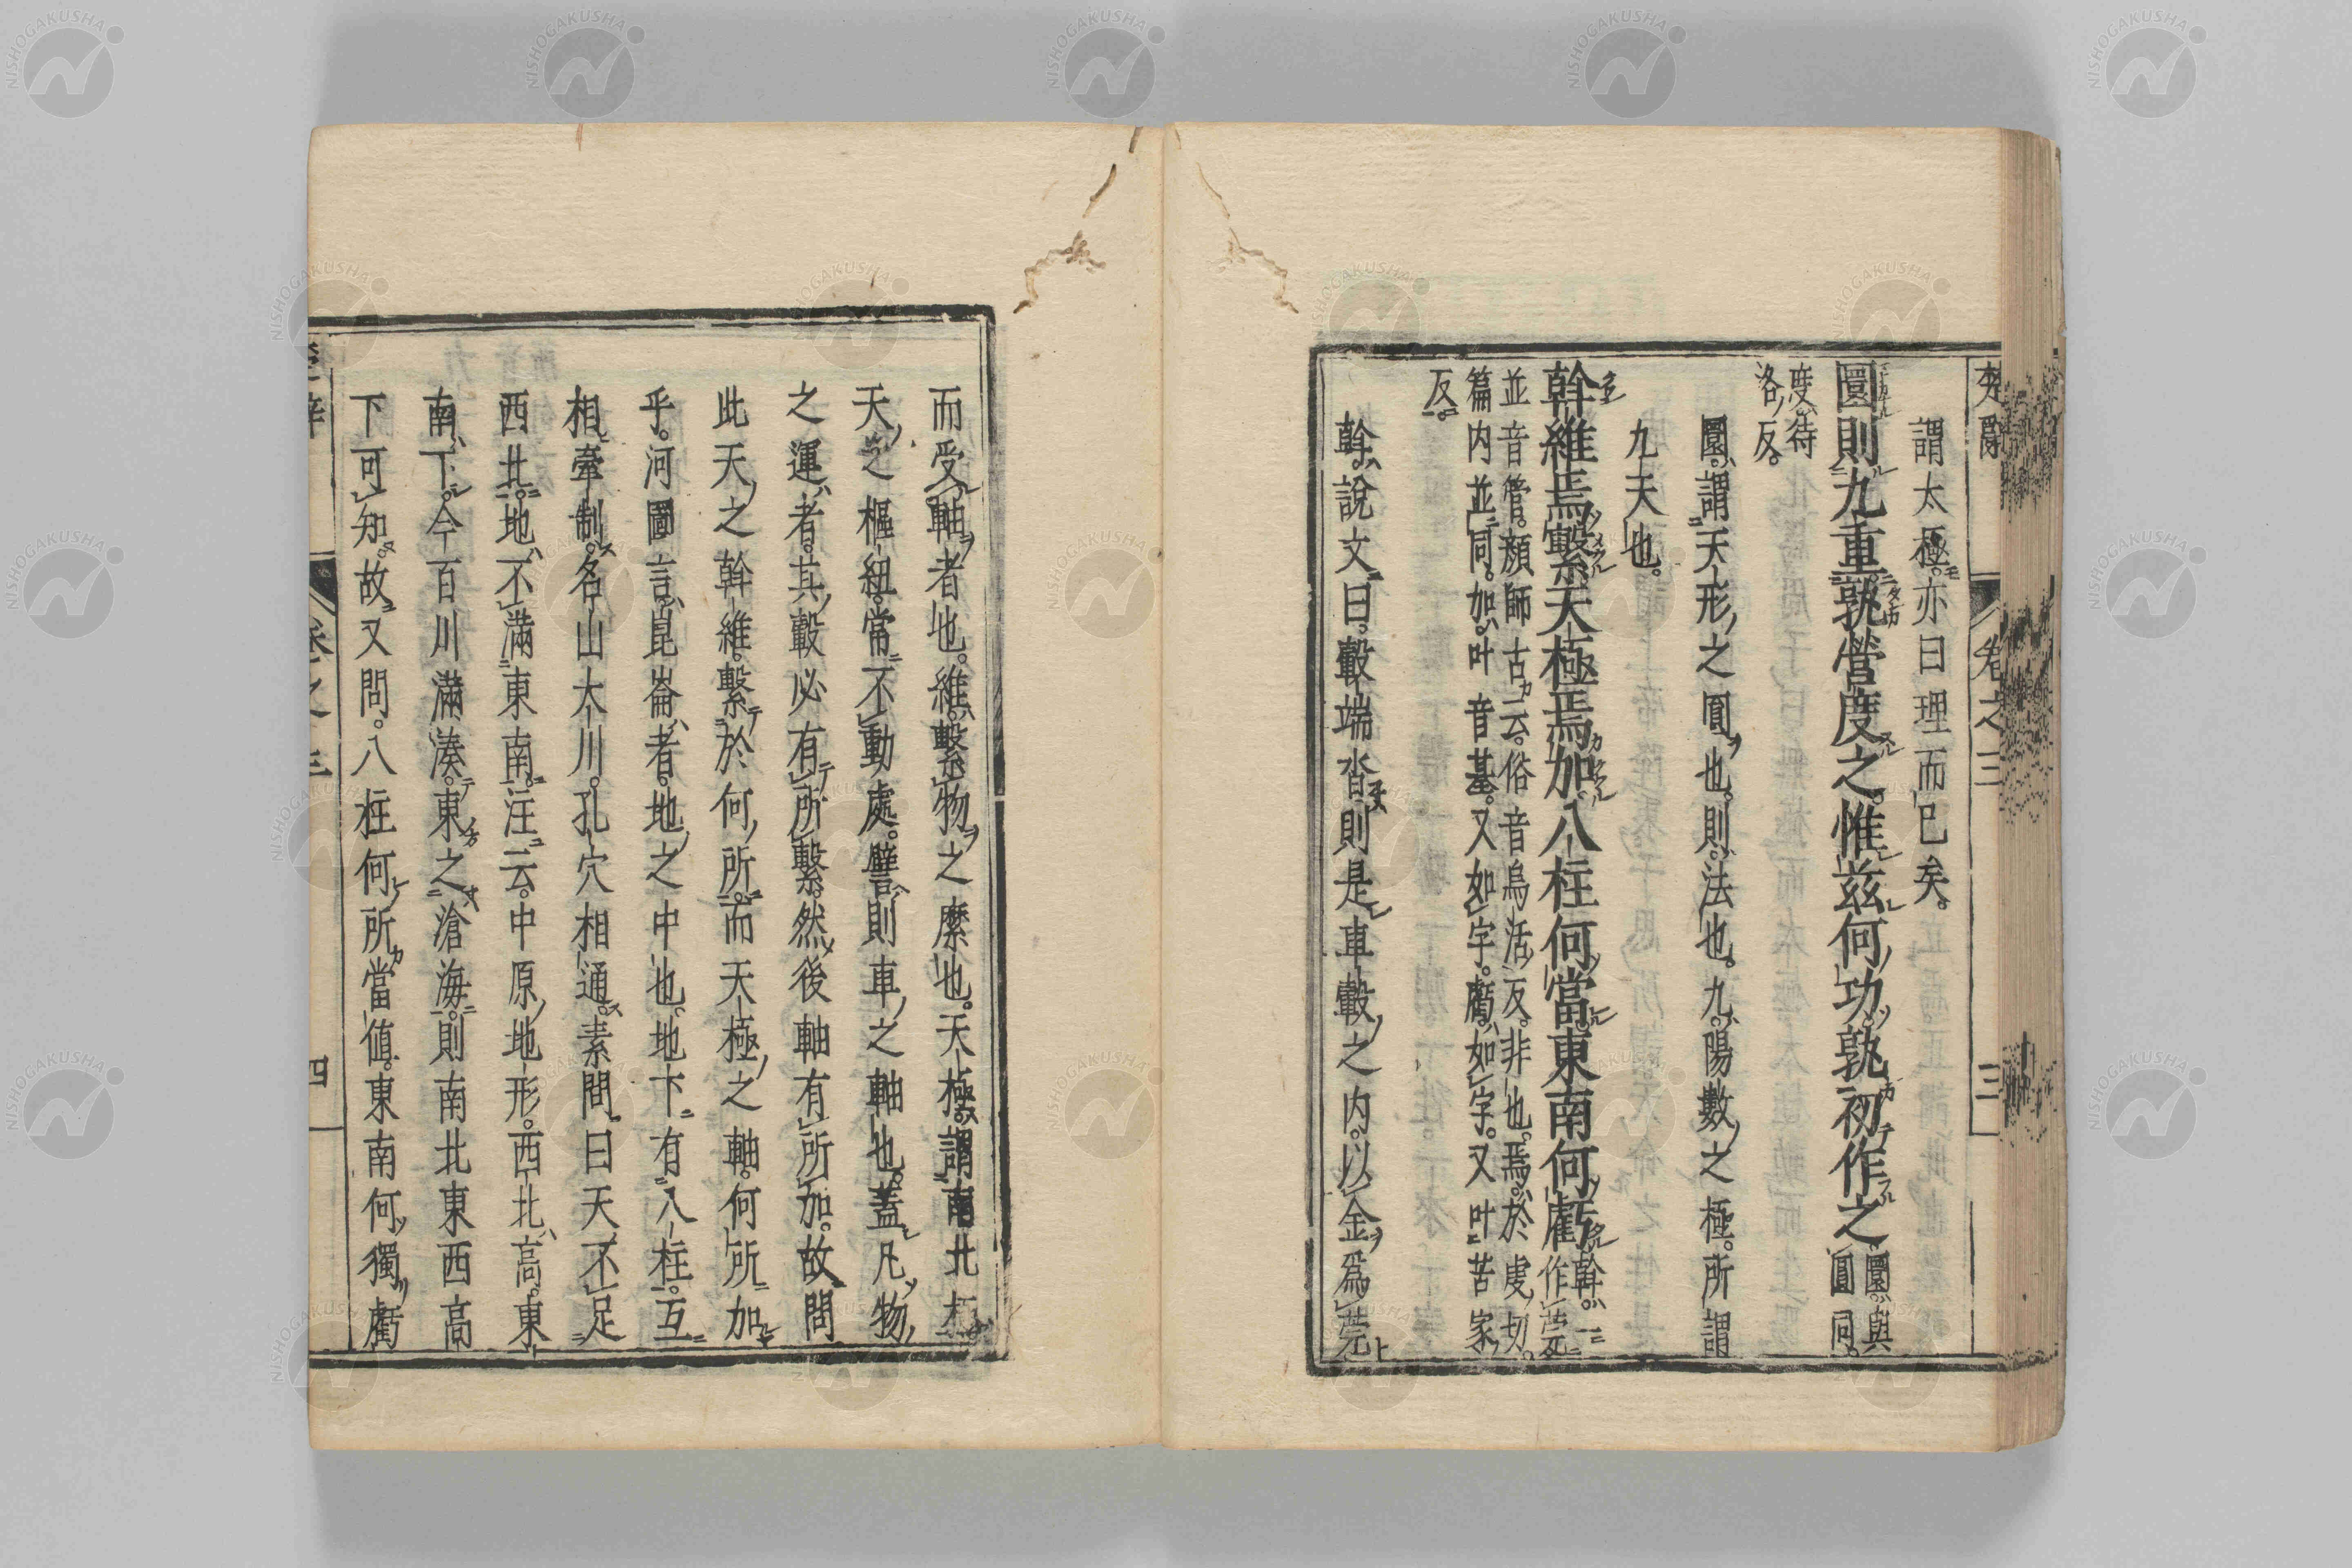 楚辭 卷之三 三
謂太極亦曰理而已矣。
圜則九重。孰營度之。惟茲何功。孰初作之。圜與圓同。
度待洛反。
圜謂天形之圓也。則法也。九陽數之極。所謂
九天也。
斡維焉繫天極焉加。八柱何當。東南何虧斡。一作莞
並音管。顏師古云。俗音烏活反。非也。焉。於虔切。
篇內並同。加。叶音基。又如字。虧。如字。又叶苦家
反。
斡。說文曰。轂端沓。則是車轂之内。以金爲莞
而受軸者也。維。繫物之縻也。天極。謂南北極
天之樞紐。常不動處。譬則車之軸也。蓋凡物
之運者。其轂必有所繫。然後軸有所加。故問
此天之斡維。繫於何所。而天極之軸。何所加
乎。河圖言。崑崙者。地之中也。地下有八柱。互
相牽制。名山大川。孔穴相通。素問曰天不足
西北。地不滿東南。注云。中原地形。西北高。東
南下。今百川滿湊。東之滄海。則南北東西高
下可知。故又問。八柱何所當値。東南何獨虧
卷之三 四
NISHOGAKUSHA